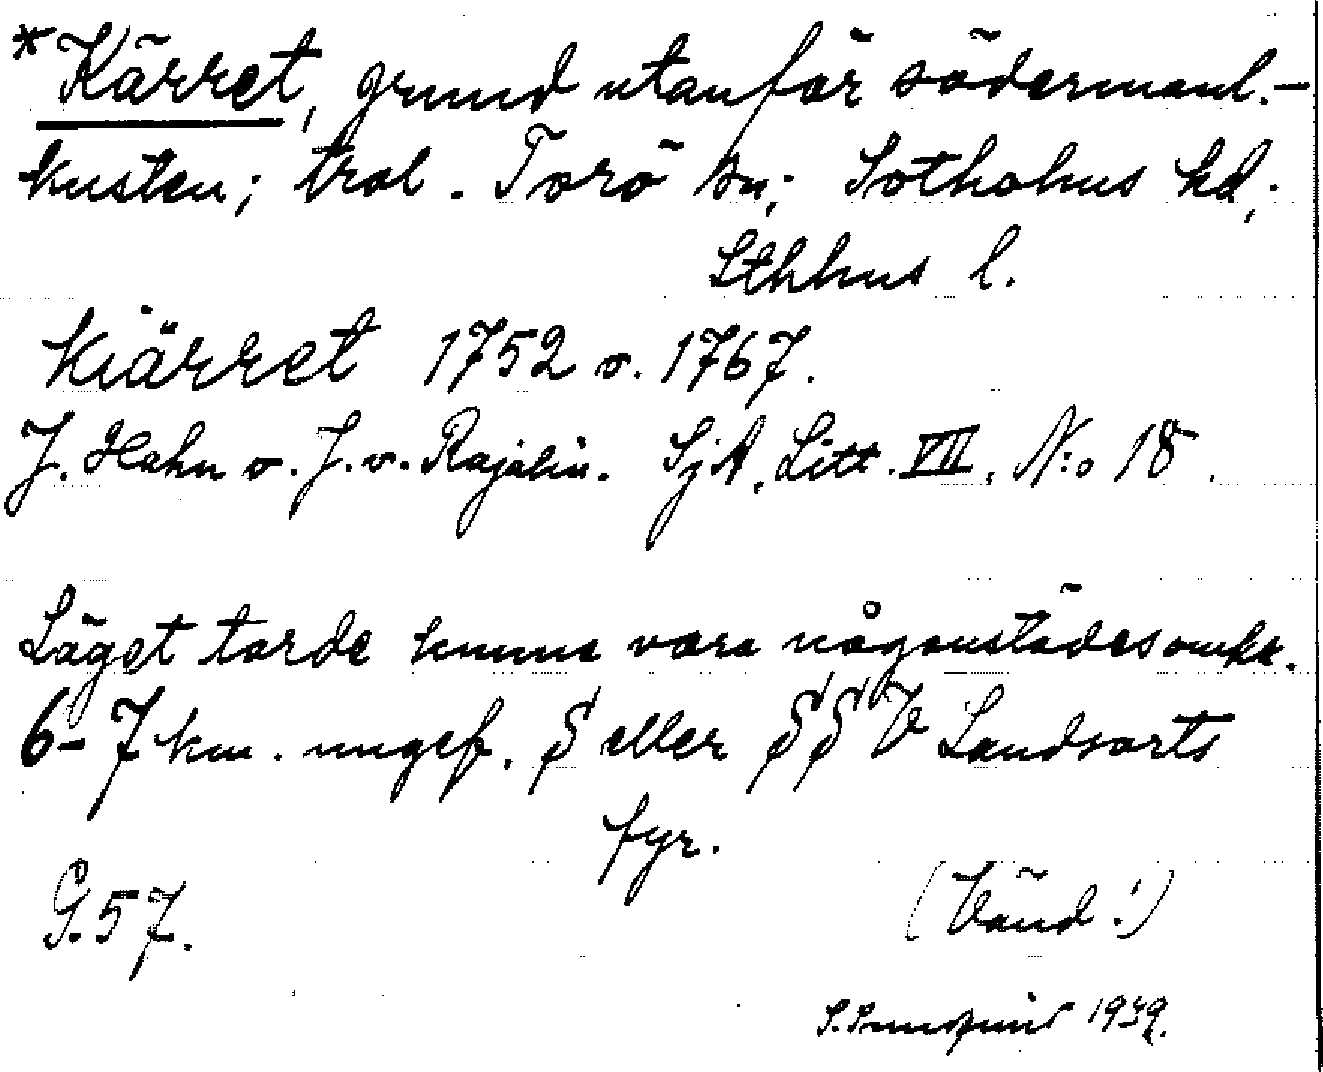 *Kärret, grund utanför södermanl.-
kusten; trol. Torö sn; Sotholms hd;
Sthlms l.
Kiärret 1752 o. 1767.
J. Hahn o. J. v. Rajalin. SjA, Litt. VII, N:o 18.
Läget torde kunna vara någonstädes omkr.
6-7 km. ungef. S eller SSV Landsorts
fyr.
G.57.
(Vänd!)
1939.